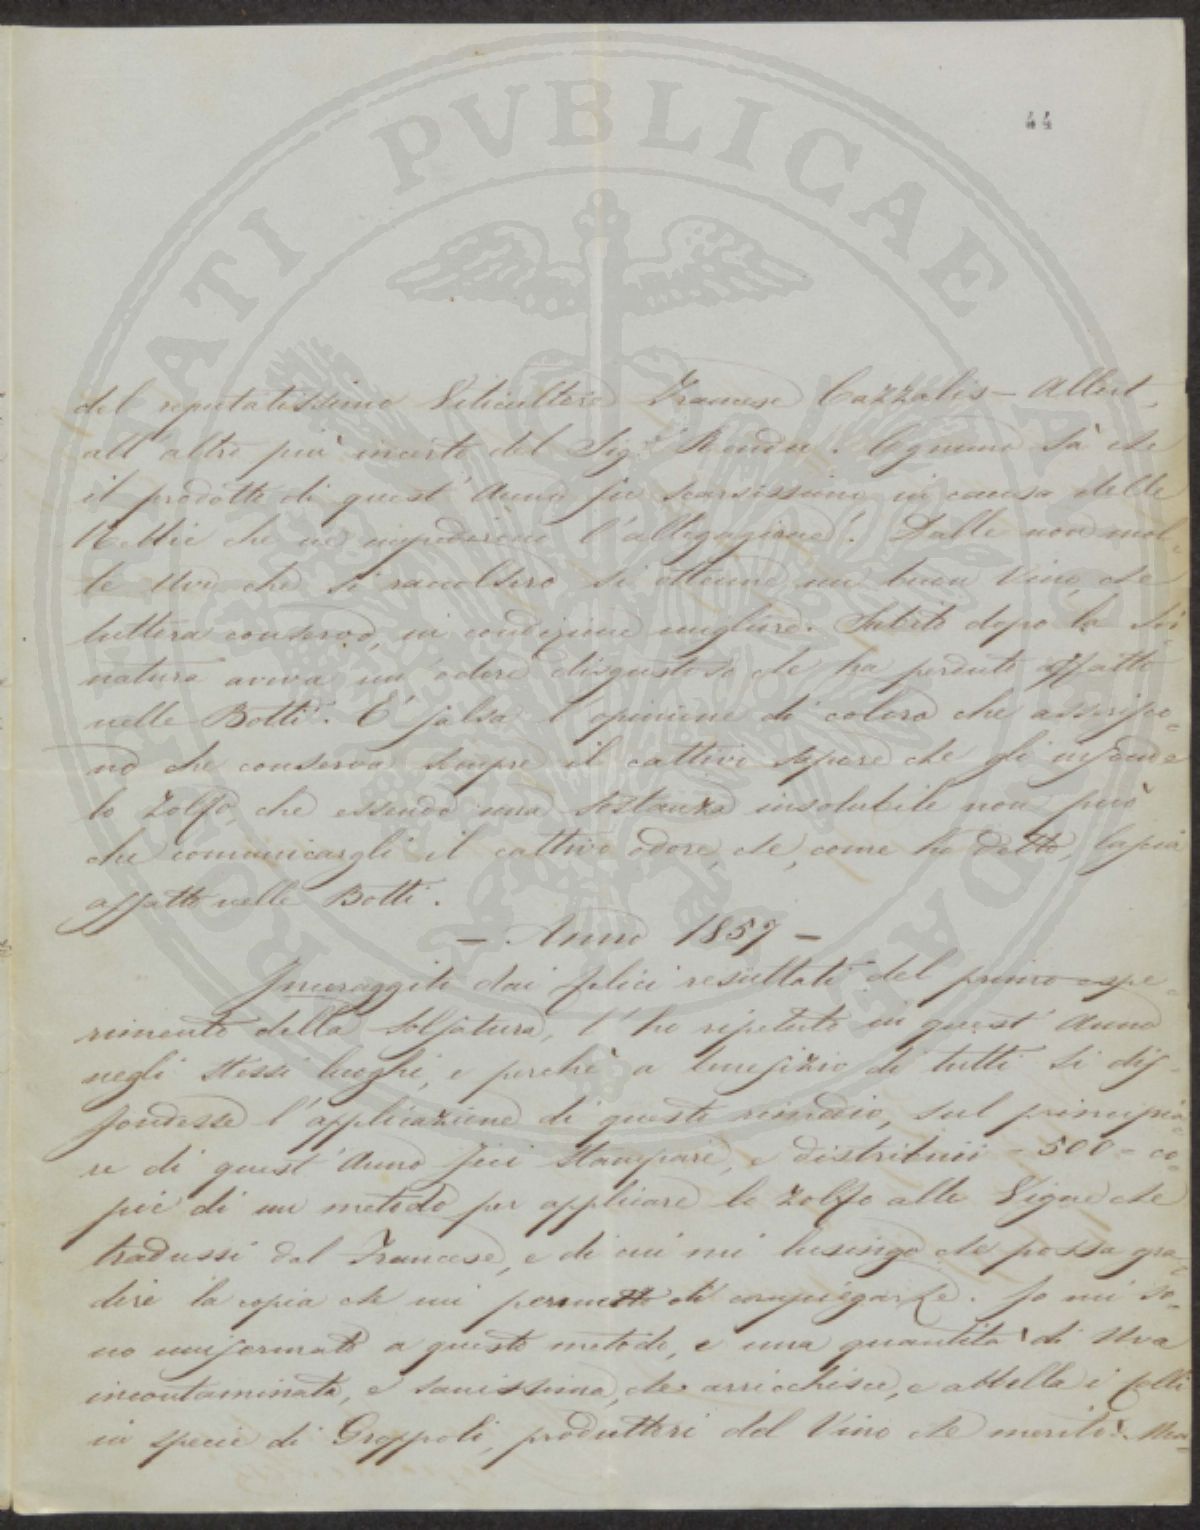 44
del reputatissimo Viticultore Francese Cazzalis - Allert,
all'altro più incerto del Sig.r Rendu. Ognuno sà che
il prodotto di quest'Anno fu scarsissimo in causa delle
che ne impedirono l'allegagione! Dalle non mol-
te Uve che si raccolsero si ottenne un buon Vino, che
tuttora conservo, in condizione migliore. Subito dopo la Svi-
natura aveva un'odore disgustoso che ha perduto affatto
nelle Botti. E' falsa l'opinione di coloro che asserisco-
no che conserva sempre il cattivo sapore che gli infonde
lo Zolfo, che essendo una sostanza insolubile non può
che comunicargli il cattivo odore, che, come ho detto, lascia
affatto nelle Botti.
- Anno 1857 -
Incoraggito dai felici resultati del primo espe-
rimento della Solfatura, l'ho ripetuto in quest'Anno
negli stessi luoghi, e perchè a benefizio di tutti si dif-
fondesse l'applicazione di questo rimedio, sul principia-
re di quest'Anno feci stampare, e distribuii - 500 - co-
pie di un metodo per applicare lo Zolfo alle Vigne che
tradussi dal Francese, e di cui mi lusingo che possa gra-
dire la copia che mi permetto di compiegarLe. Io mi so-
no uniformato a questo metodo, e una quantità di Uva
incontaminata, e sanissima, che arricchisce, e abbella i Colli
in specie di Groppoli, produttori del Vino che meritò. Ma-